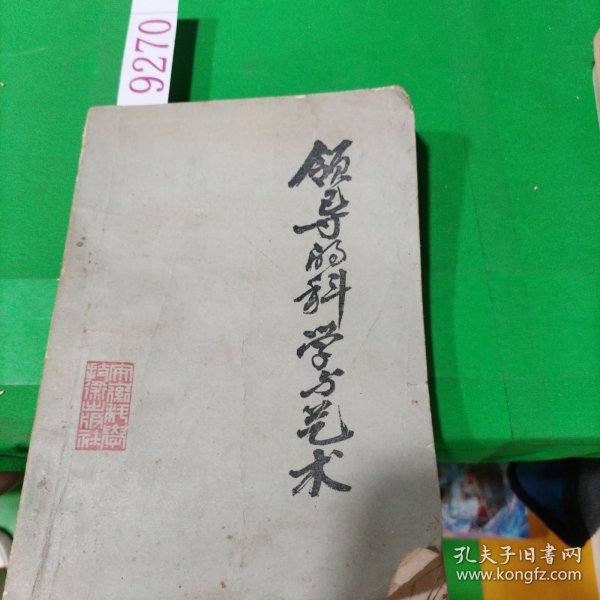 9270
领导的科学与艺术
安徽科学
技术出版社
孔夫子旧书网
www.kongfz.com